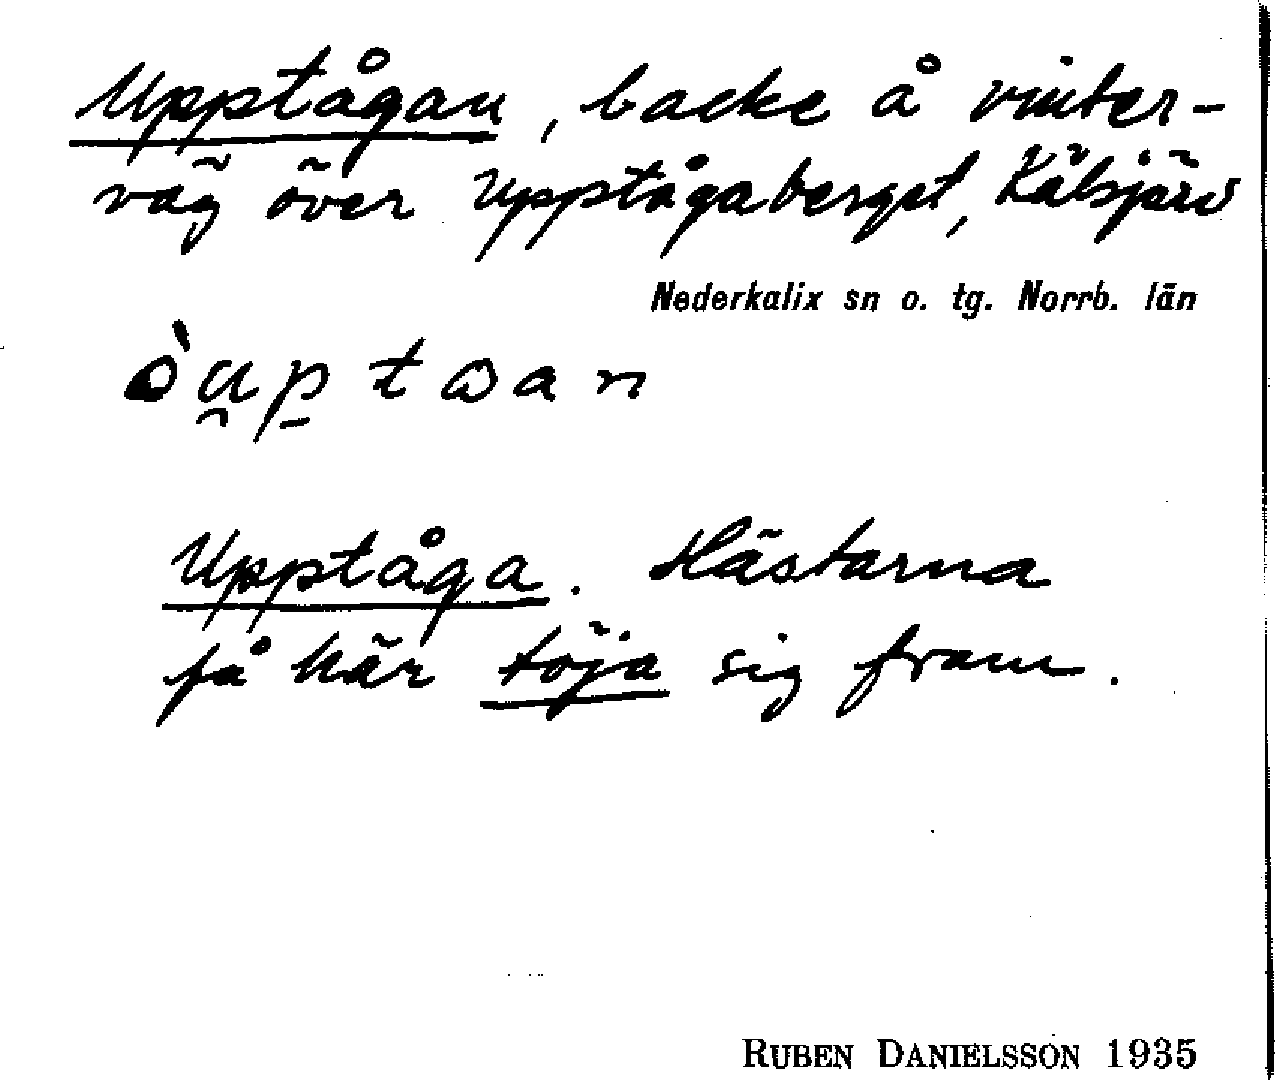 Upptågan, backe å vinter-
väg över Upptågaberget, Kälsjärv
Nederkalix sn o. tg. Norrb. län
òu̯p̱tɷan
Upptåga. Hästarna
få här töja sig fram.
RUBEN DANIELSSON 1935